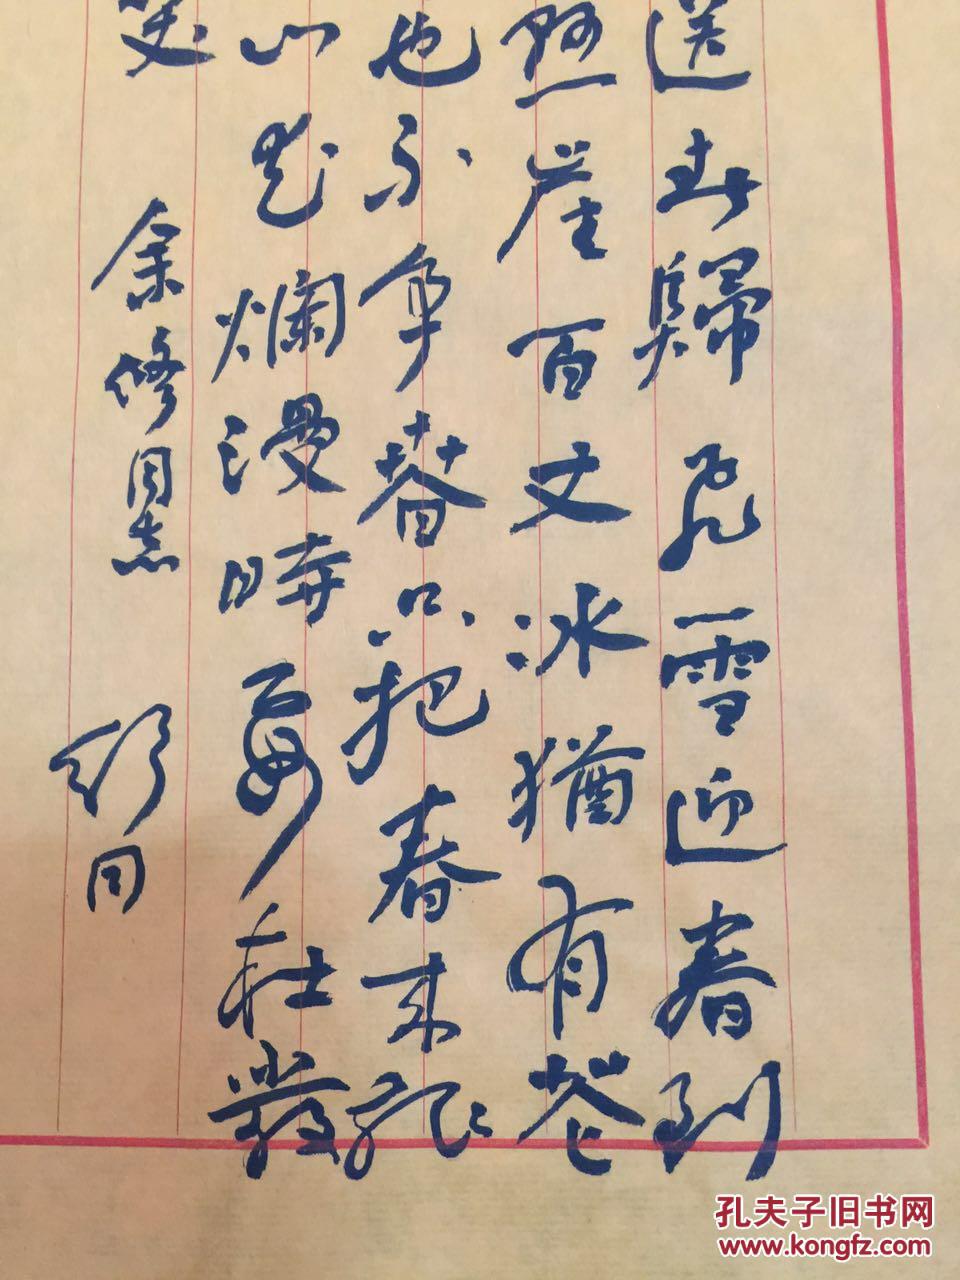 送春歸飛雪迎春到
懸崖百丈冰猶有花
也不爭春只把春來報
山花爛漫時在叢
笑 余修同志 舒同
孔夫子旧书网
www.kongfz.com